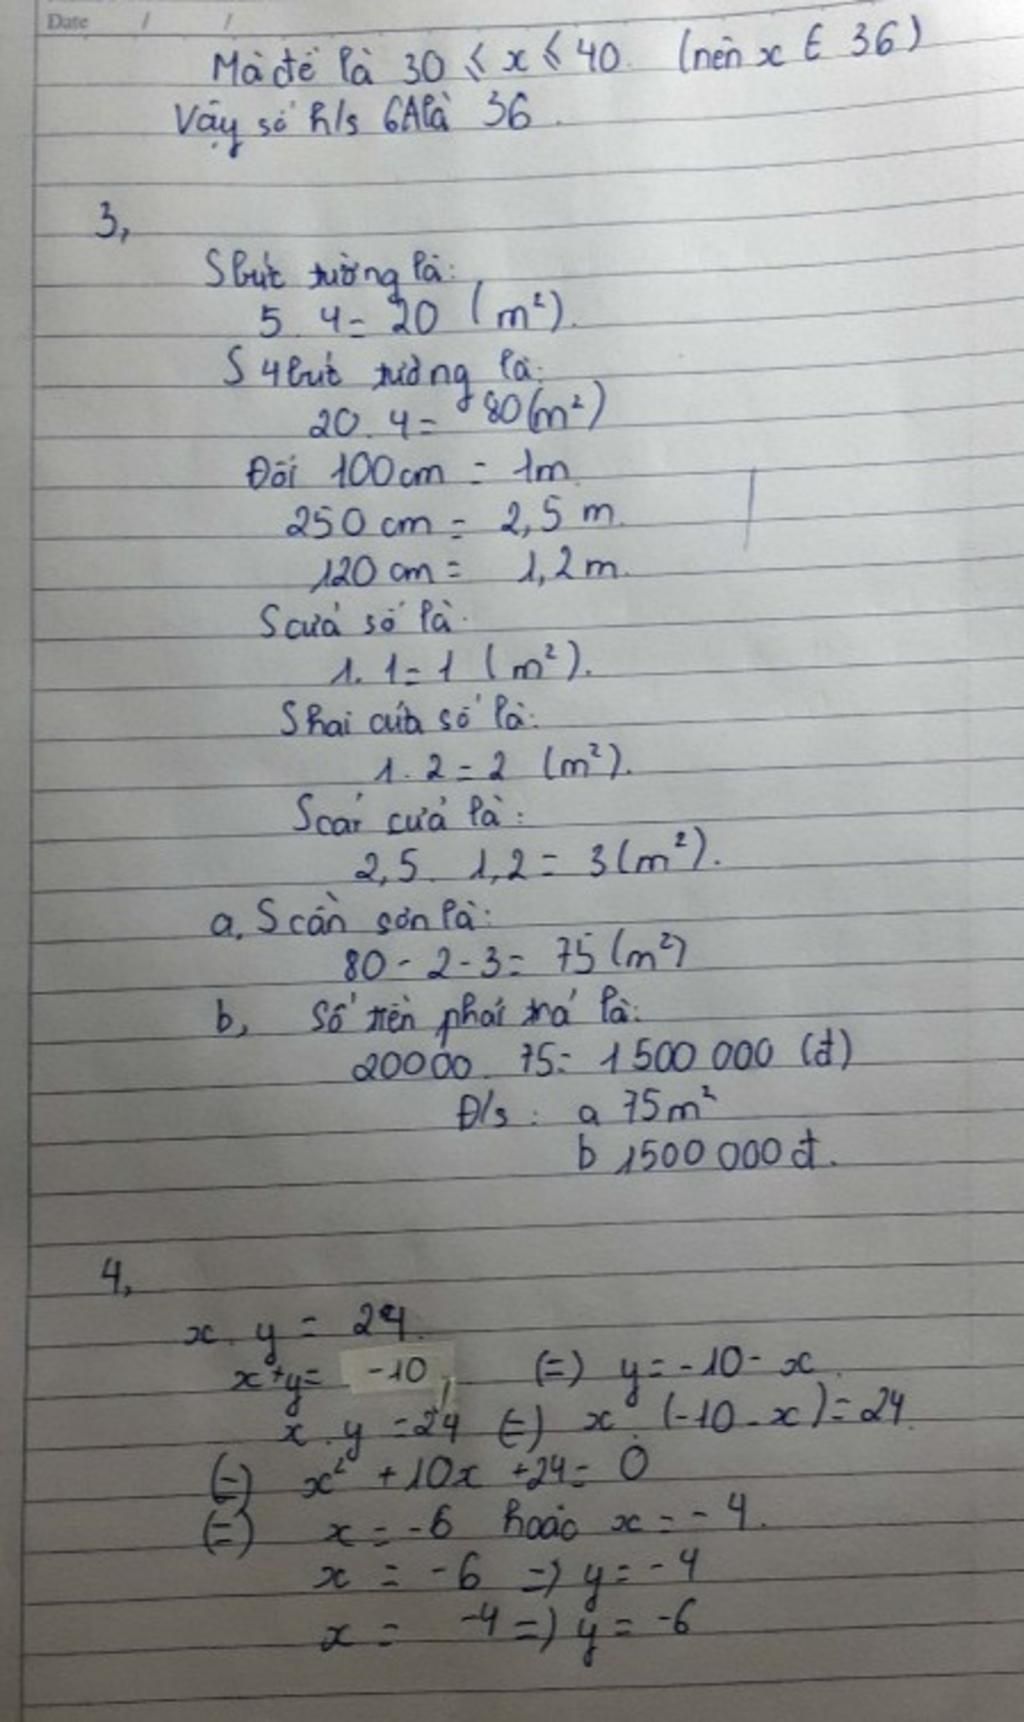 Date / /
Mà đề là 30 ≤ x ≤ 40. (nên x ∈ 36)
Vậy số h/s 6A là 36.
3,
S bức tường là:
5 . 4 = 20 (m²).
S 4 bức tường là:
20 . 4 = 80 (m²)
Đổi 100 cm = 1m
250 cm = 2,5 m.
120 cm = 1,2 m.
S cửa sổ là:
1 . 1 = 1 (m²).
S hai cửa sổ là:
1 . 2 = 2 (m²).
S cái cửa là:
2,5 . 1,2 = 3 (m²).
a. S cần sơn là:
80 - 2 - 3 = 75 (m²)
b, Số tiền phải trả là:
20000 . 75 = 1 500 000 (đ)
Đ/s : a 75 m²
b 1500 000 đ.
4,
x . y = 24.
x + y = -10, (=) y = -10 - x
x . y = 24 (=) x . (-10 - x) = 24.
(=) x² + 10x + 24 = 0
(=) x = -6 hoặc x = -4.
x = -6 => y = -4
x = -4 => y = -6